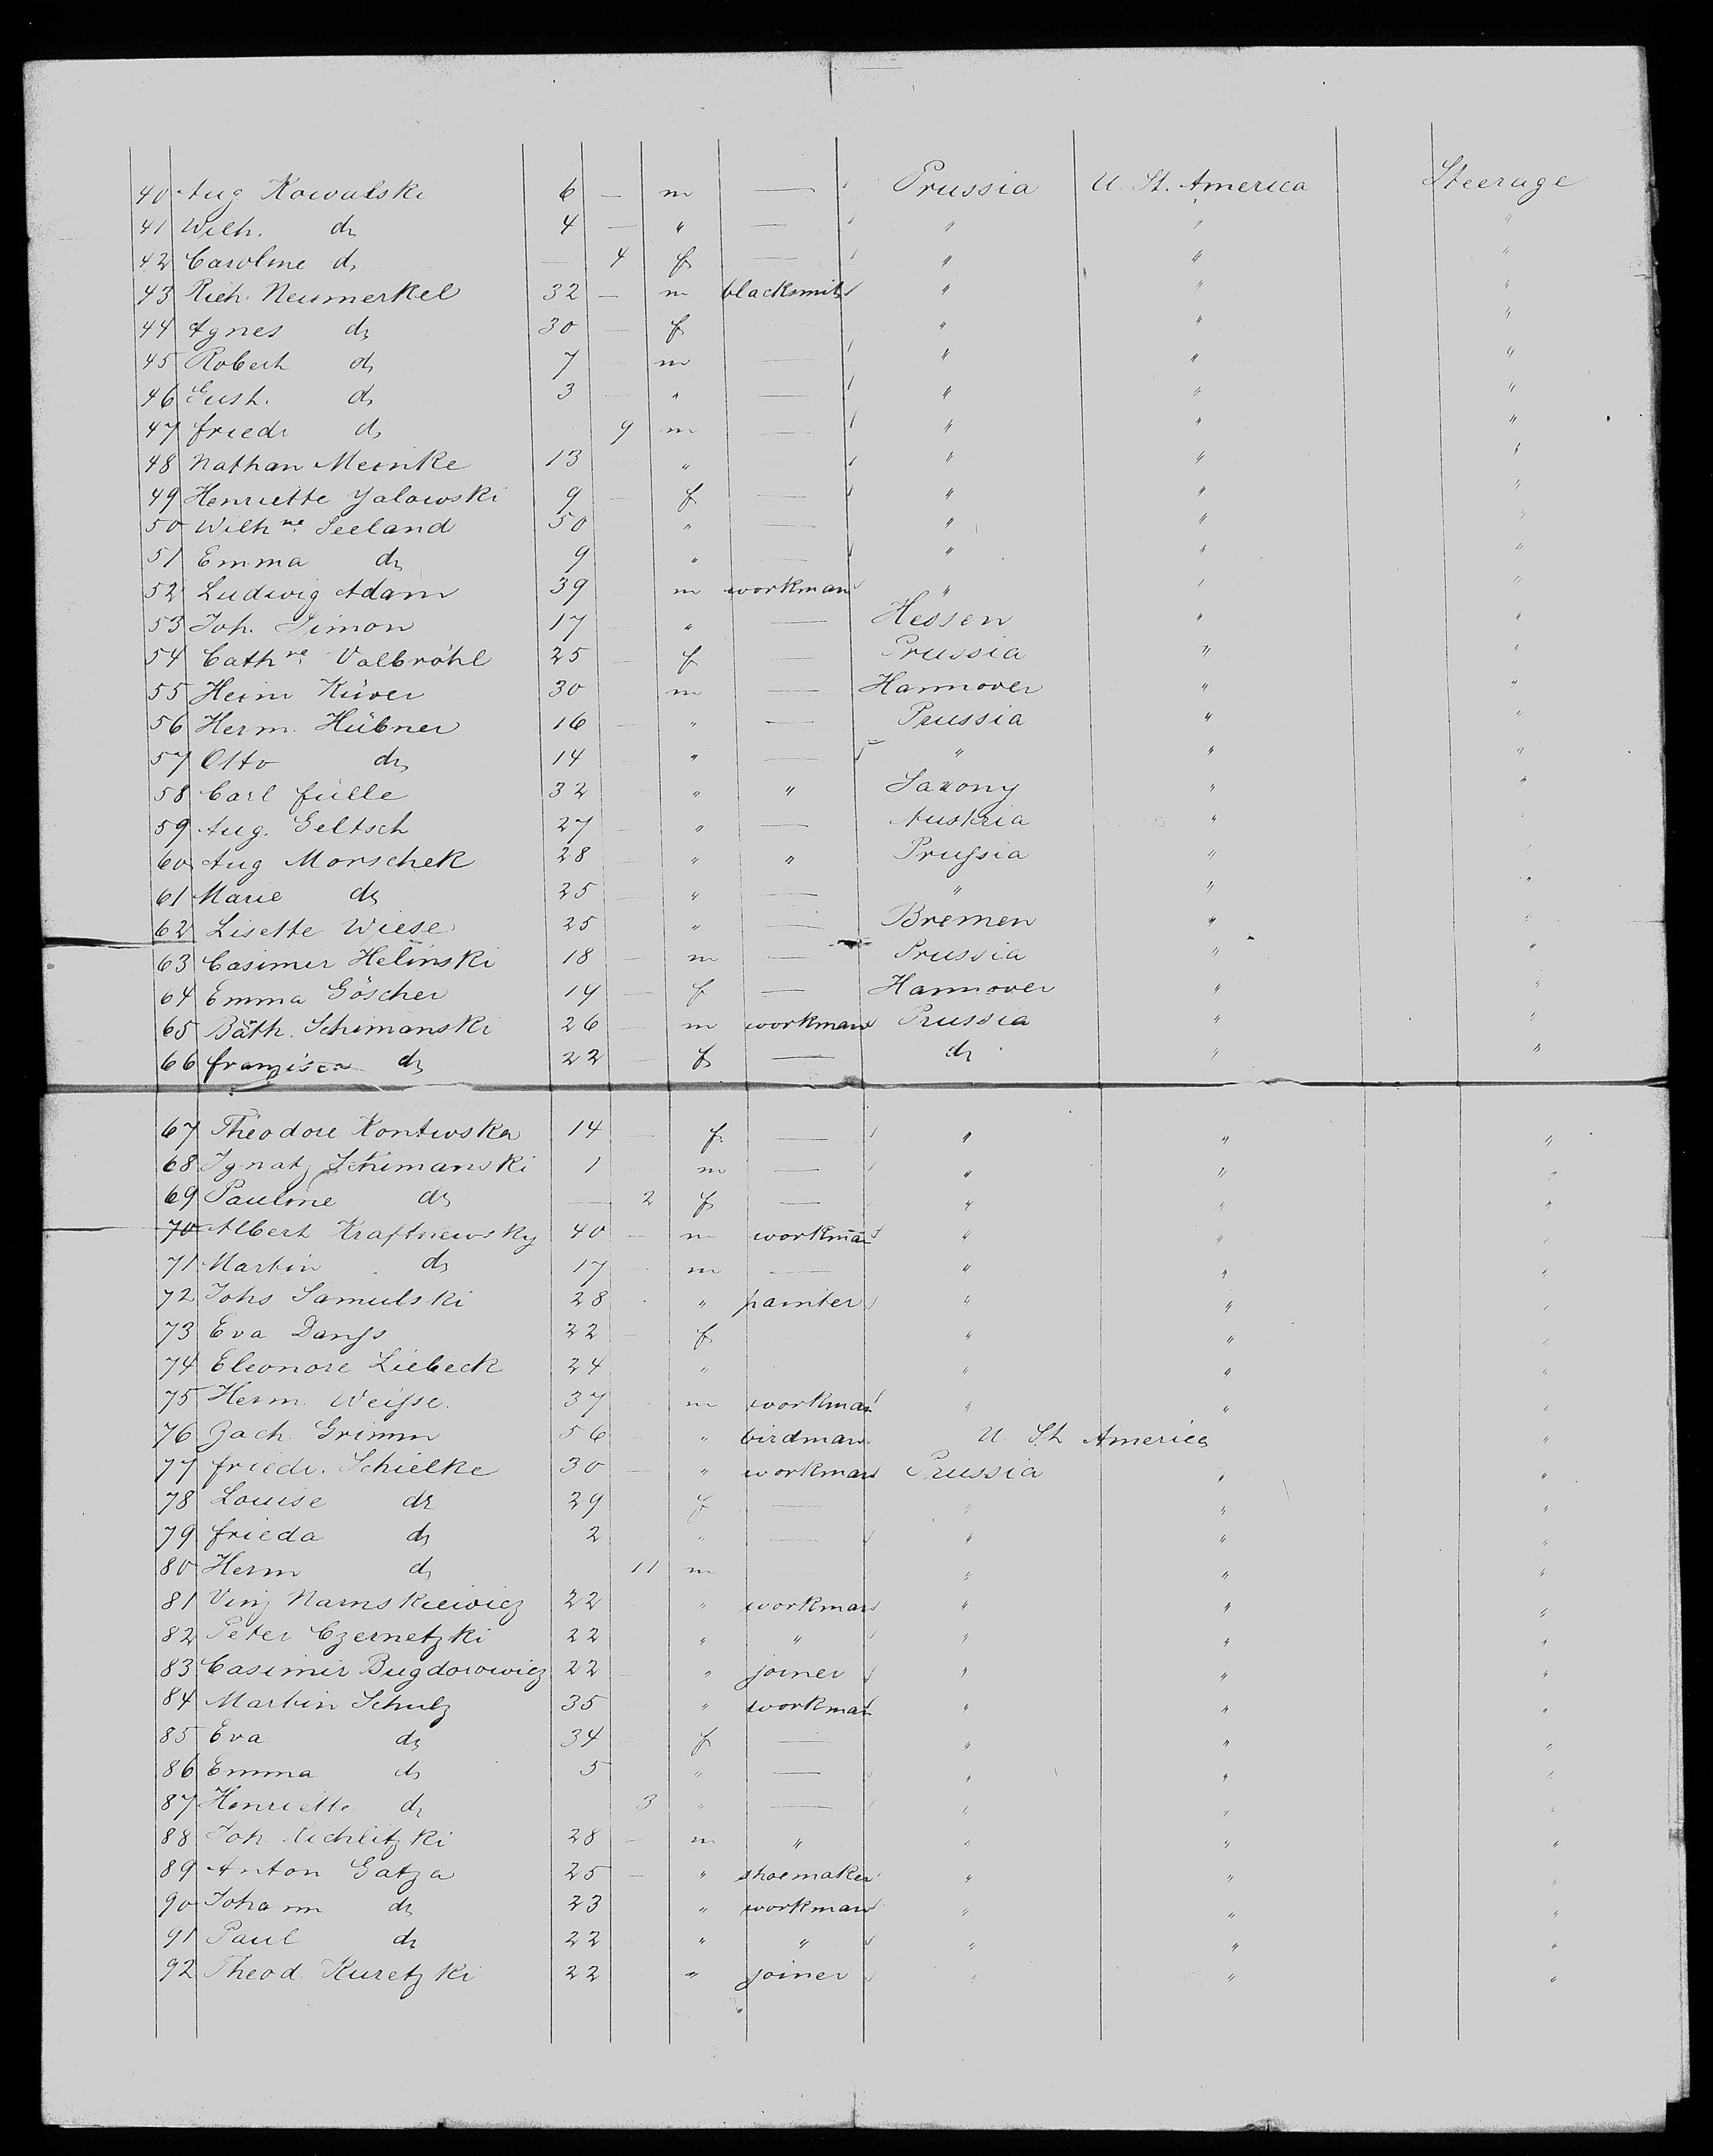 40 Aug Kowalski 6 — m — Prussia U. St. America Steerage
41 Wilh. do 4 — " — " " "
42 Caroline do — 4 f — " " "
43 Rich. Neumerkel 32 — m blacksmith " " "
44 Agnes do 30 — f " " "
45 Robert do 7 m — " " "
46 Gust. do 3 — " — " " "
47 Friedr do 9 m — " " "
48 Nathan Meinke 13 " " " "
49 Henriette Yalowski 9 — f — " " "
50 Wilhne Seeland 50 " — " " "
51 Emma do 9 " — " " "
52 Ludwig Adam 39 m workman " " "
53 Joh. Simon 17 — " — Hessen " "
54 Cathne Valbröhl 25 — f — Prussia " "
55 Heinr Küver 30 m — Hannover " "
56 Herm. Hübner 16 — " — Prussia " "
57 Otto do 14 " — " " "
58 Carl Fülle 32 " " Saxony " "
59 Aug. Geltsch 27 — " — Austria " "
60 Aug Morschek 28 — " " Prussia " "
61 Marie do 25 — " — " " "
62 Lisette Wiese 25 " — Bremen " "
63 Casimir Helinski 18 — m — Prussia " "
64 Emma Göscher 19 — f — Hannover " "
65 Bath. Schimanski 26 — m workman Prussia " "
66 Franzisca do 22 — f — do " "
67 Theodore Kontwska 14 — f — " " "
68 Ignatz Schimanski 1 m — " " "
69 Pauline do — 2 f — " " "
70 Albert Kraftnewsky 40 — m workman " " "
71 Martin do 17 — m — " " "
72 Johs Samulski 28 " painter " " "
73 Eva Danss 22 — f " " "
74 Eleonore Liebeck 24 " " " "
75 Herm. Weisse 37 — m workman " " "
76 Zach. Grimm 56 " birdman U. St. America "
77 Friedr. Schielke 30 — " workman Prussia " "
78 Louise do 29 f — " " "
79 Frieda do 2 " — " " "
80 Herm do 11 m " " "
81 Vinz Narnskiewicz 22 " workman " " "
82 Peter Czernetzki 22 " " " " "
83 Casimir Bugdorowicz 22 — " joiner " " "
84 Martin Schulz 35 " workman " " "
85 Eva do 34 — f — " " "
86 Emma do 5 " — " " "
87 Henriette do 3 " — " " "
88 Joh. 28 — m " " " "
89 Anton Gatza 25 — " shoemaker " " "
90 Johann do 23 " workman " " "
91 Paul do 22 " " " " "
92 Theod. Kuretzki 22 " joiner " " "